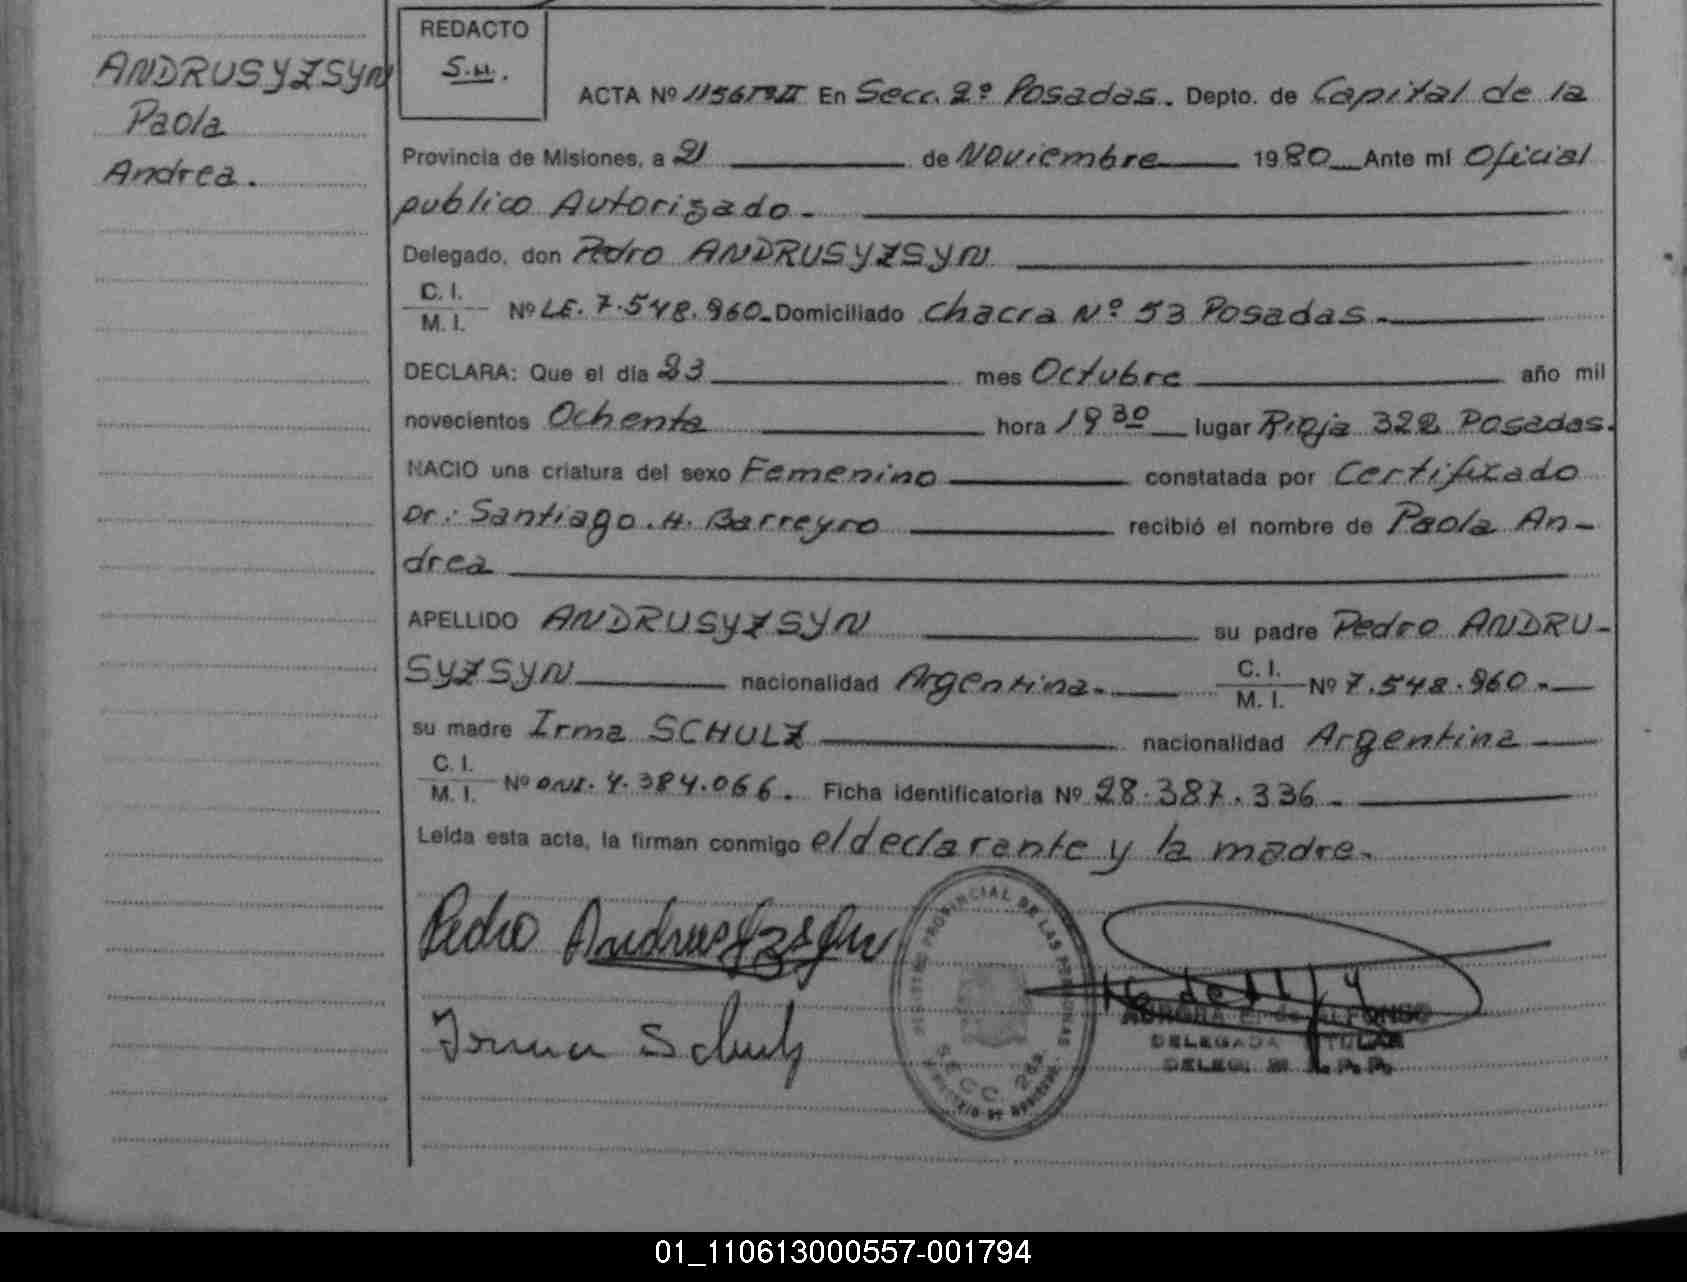 ANDRUSYZSYN
Paola
Andrea.
REDACTO
S.M.
ACTA Nº 1156 Tº II En Secc. 2º Posadas. Depto. de Capital de la
Provincia de Misiones, a 21 de Noviembre 1980 Ante mí Oficial
publico Autorizado.
Delegado, don Pedro ANDRUSYZSYN
C. I.
M. I. Nº LE. 7.548.960. Domiciliado Chacra Nº 53 Posadas.
DECLARA: Que el día 23 mes Octubre año mil
novecientos Ochenta hora 19 30 lugar Rioja 322 Posadas.
NACIO una criatura del sexo Femenino constatada por Certificado
Dr.: Santiago. H. Barreyro recibió el nombre de Paola An-
drea
APELLIDO ANDRUSYZSYN su padre Pedro ANDRU-
SYZSYN nacionalidad Argentina. C. I.
M. I. Nº 7.548.960.
su madre Irma SCHULZ nacionalidad Argentina
C. I.
M. I. Nº DNI. 4.384.066. Ficha identificatoria Nº 28.387.336.
Leída esta acta, la firman conmigo el declarante y la madre.
Pedro Andrusyzsyn
Irma Schulz
REGISTRO PROVINCIAL DE LAS PERSONAS
SECC. 2da.
AURORA E. de ALFONSO
DELEGADA TITULAR
01_110613000557-001794